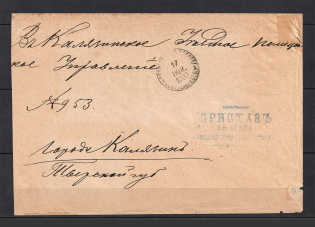 Въ Калязинское Уѣздное полицей
ское Управленіе
17
№ 953.
ПРИСТАВЪ
Города Калязинъ
Тверской губ